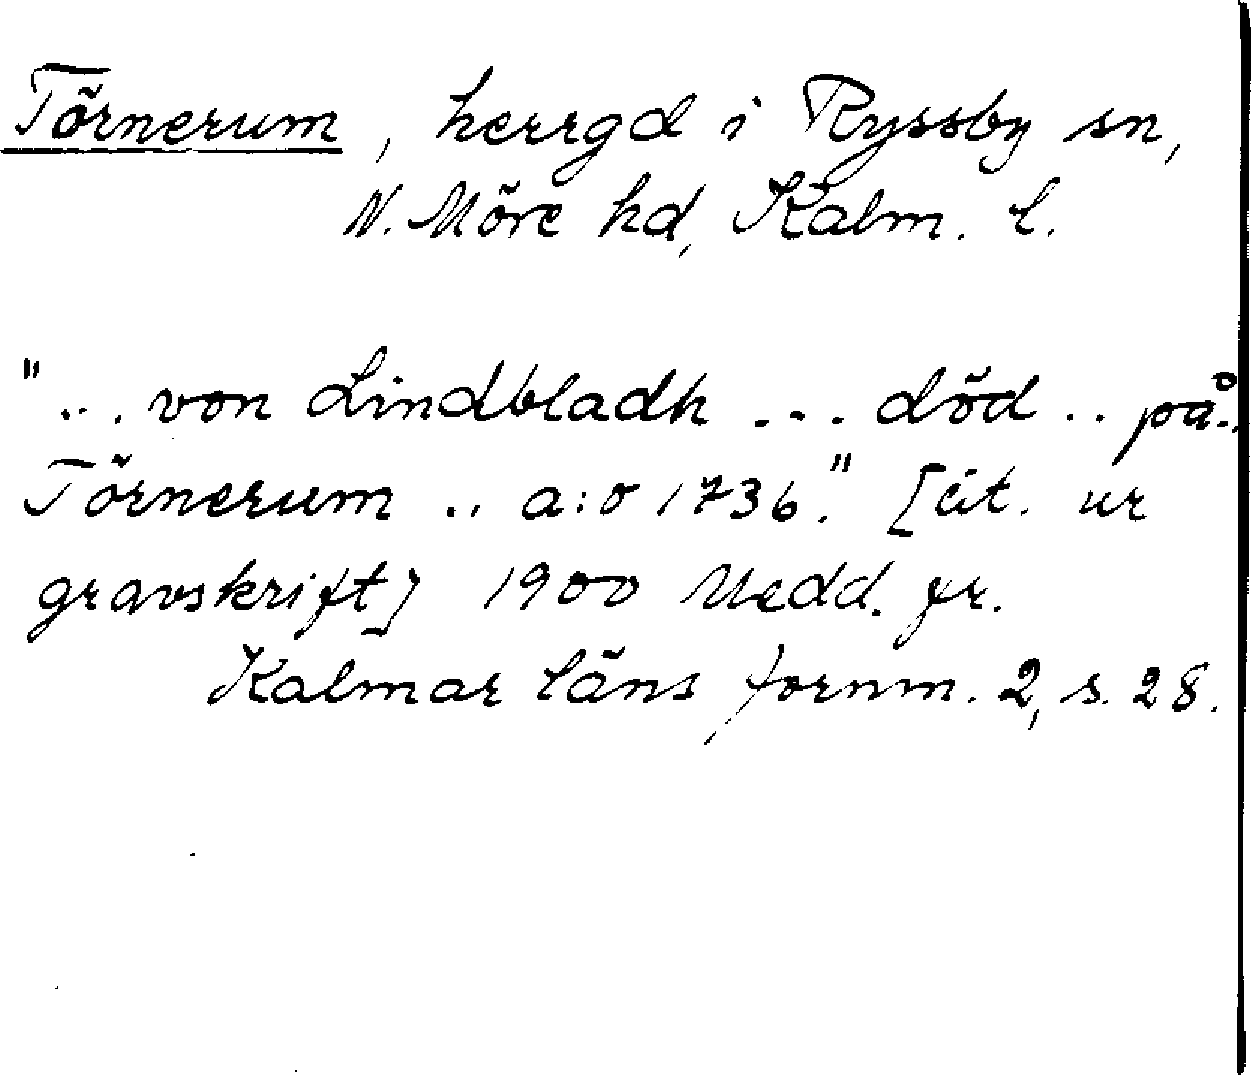 Törnerum, herrgd i Ryssby sn,
N. Möre hd, Kalm. l.
"... von Lindbladh ... död .. på..
Törnerum .. a:o 1736." [cit. ur
gravskrift] 1900 Medd. fr.
Kalmar läns fornm. 2, s. 28.